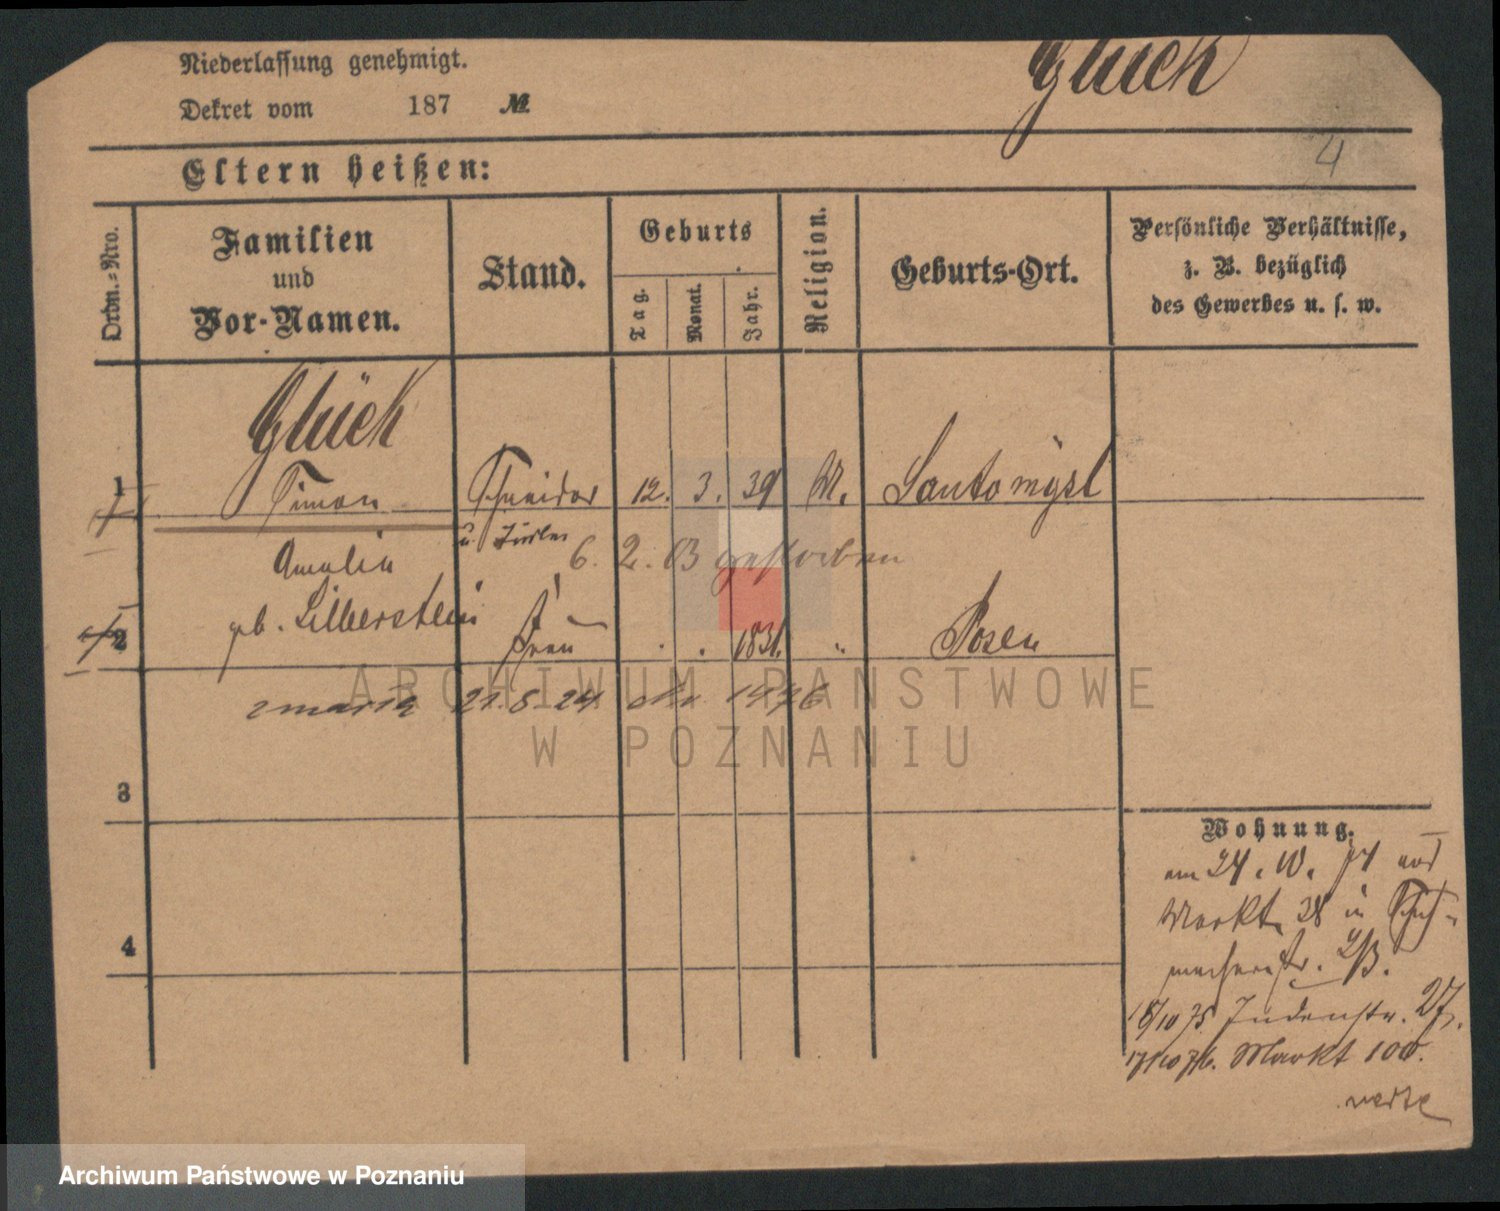 Niederlassung genehmigt.
Glück
Dekret vom 187 №
4
Eltern heißen:
Ordn.-Nro.
Familien
und
Vor-Namen.
Stand.
Geburts
Tag.
Monat.
Jahr.
Religion.
Geburts-Ort.
Persönliche Verhältnisse,
z. B. bezüglich
des Gewerbes u. s. w.
Glück
1 Simon Schneider 12. 3. 39 M. Santomysl
u.
Amalia 6. 2. 03 gestorben
geb. Silberstein
2 Frau 1831. " Posen
zmarła 21.8.24 Nr 1476
ARCHIWUM PAŃSTWOWE
W POZNANIU
3
Wohnung.
am 24. 10. 74 von
Markt 38 in Schuh-
macherstr. 2/3.
18/10 75 Judenstr. 27.
17/10 76. Markt 100.
verte
4
Archiwum Państwowe w Poznaniu